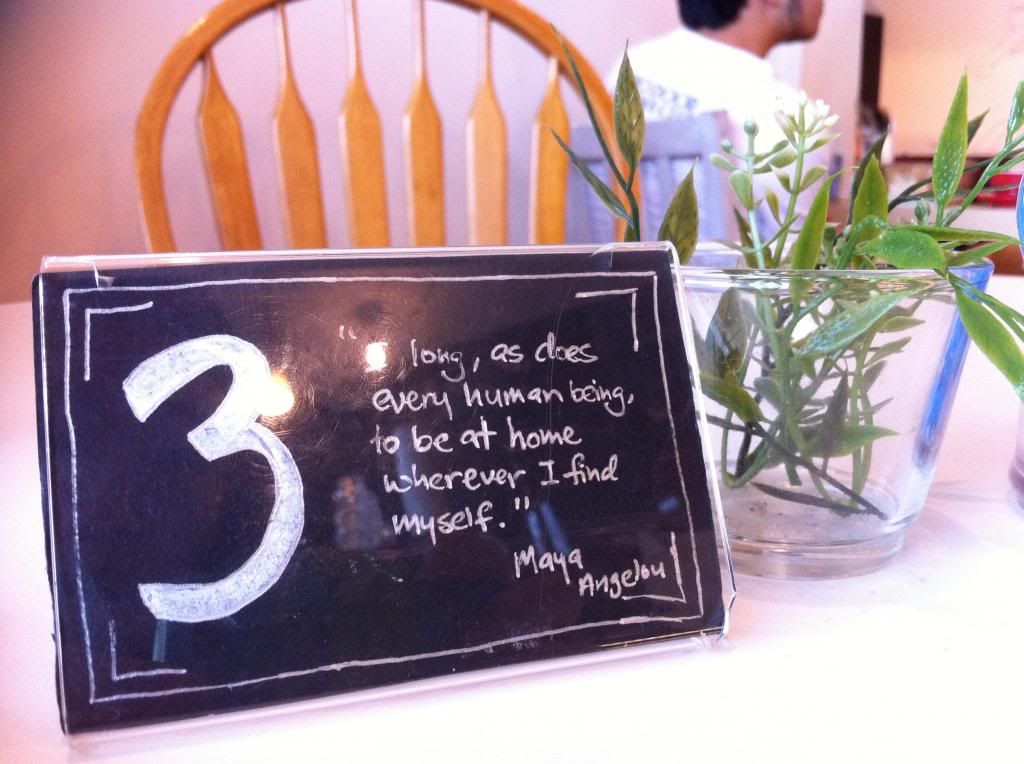 3
" long, as does
every human being,
to be at home
wherever I find
myself."
Maya
Angelou